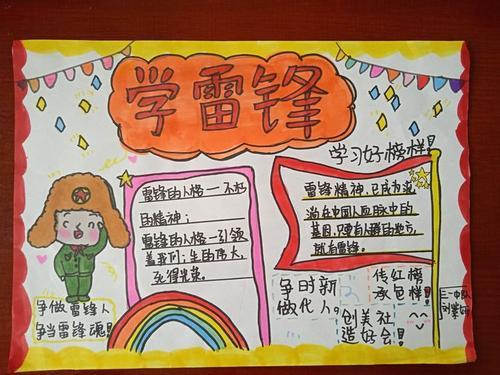 学雷锋
学习好榜样!
雷锋的人格——不朽
的精神；
雷锋的人格——引领
着我们：生的伟大，
死得光荣。
雷锋精神，已成为流
淌在中国人血脉中的
基因，只要有人群的地方，
就有雷锋。
争做雷锋人
争当雷锋魂!
争时新
做代人。
传红榜
承色样!
创美社
造好会!
三一中队